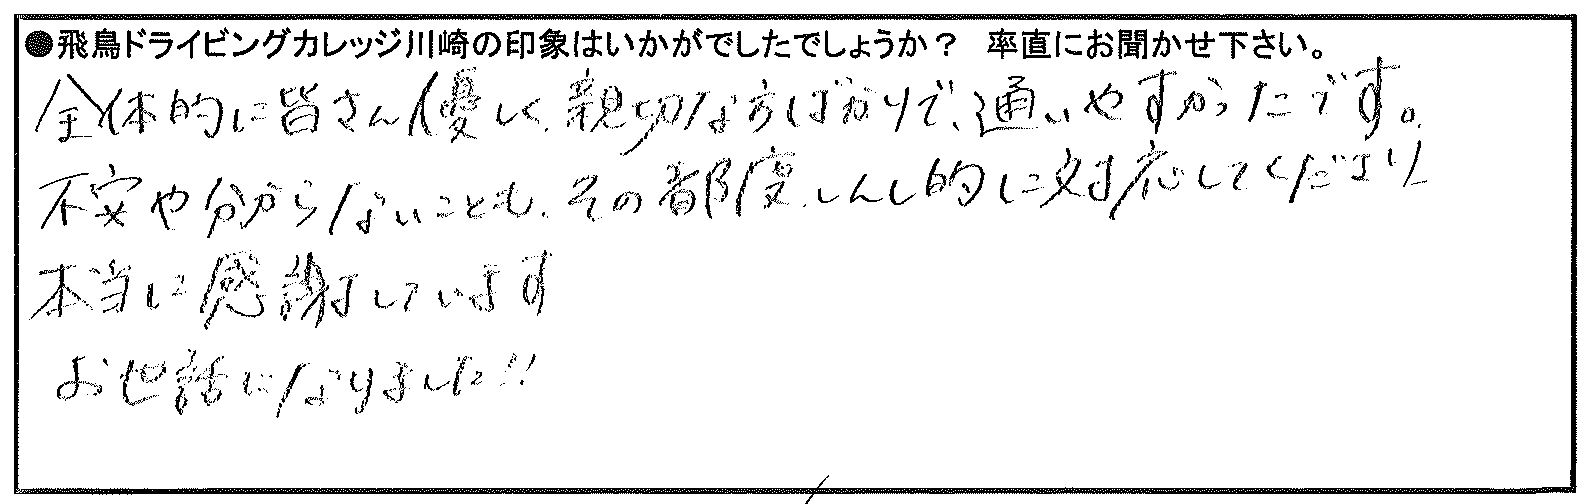 ●飛鳥ドライビングカレッジ川崎の印象はいかがでしたでしょうか？ 率直にお聞かせ下さい。
全体的に皆さん優しく、親切な方ばかりで、通いやすかったです。
不安や分からないことも、その都度、しんし的に対応してくださり
本当に感謝しています
お世話になりました!!